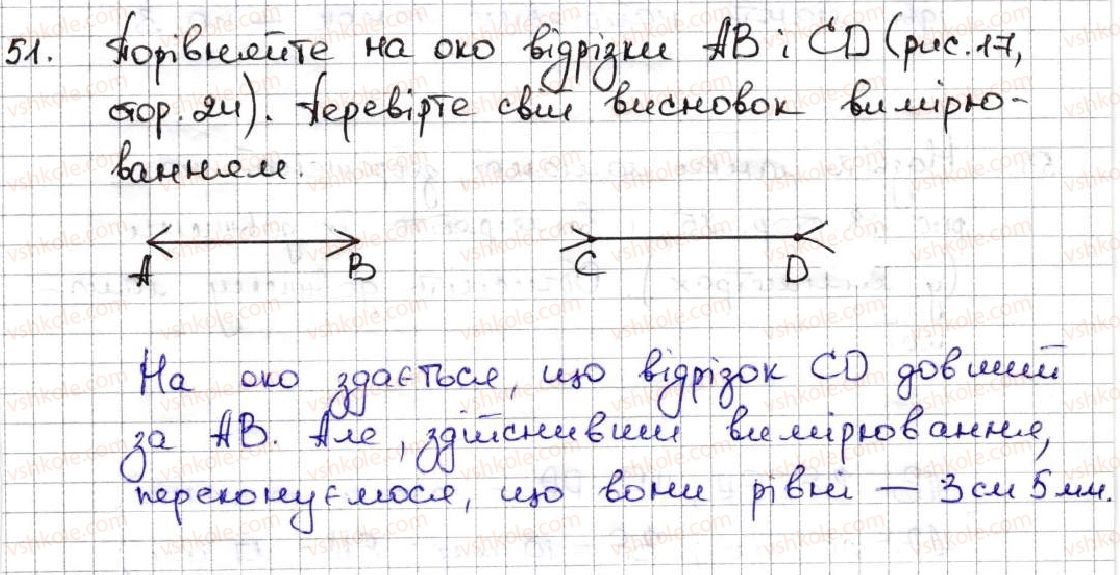 51. Порівняйте на око відрізки AB і CD (рис. 17,
стор. 24). Перевірте свій висновок вимірю-
ванням.
A B C D
На око здається, що відрізок CD довший
за AB. Але, здійснивши вимірювання,
переконуємося, що вони рівні – 3 см 5 мм.